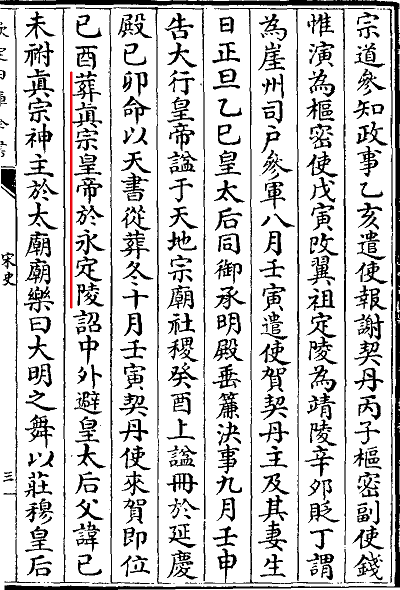 宗道參知政事乙亥遣使報謝契丹丙子樞密副使錢
惟演為樞密使戊寅改翼祖定陵為靖陵辛夘貶丁謂
為崖州司户參軍八月壬寅遣使賀契丹主及其妻生
日正旦乙巳皇太后同御承明殿垂簾決事九月壬申
告大行皇帝諡于天地宗廟社稷癸酉上諡冊於延慶
殿已卯命以天書從葬冬十月壬寅契丹使來賀即位
已酉葬真宗皇帝於永定陵詔中外避皇太后父諱已
未祔真宗神主於太廟廟樂曰大明之舞以莊穆皇后
宋史